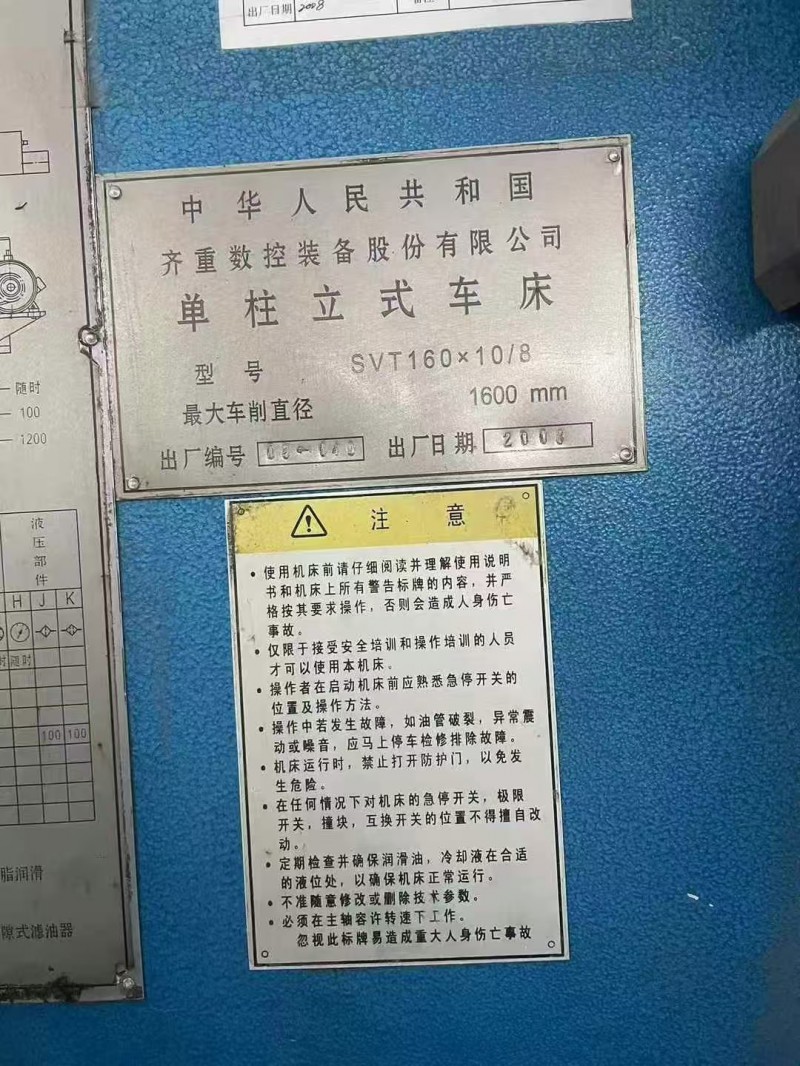 出厂日期 2008
中华人民共和国
齐重数控装备股份有限公司
单柱立式车床
型号 SVT160×10/8
最大车削直径 1600 mm
出厂编号 出厂日期
随时
100
1200
液压部件
H J K
随时
100 100
脂润滑
隙式滤油器
注意
• 使用机床前请仔细阅读并理解使用说明
书和机床上所有警告标牌的内容，并严
格按其要求操作，否则会造成人身伤亡
事故。
• 仅限于接受安全培训和操作培训的人员
才可以使用本机床。
• 操作者在启动机床前应熟悉急停开关的
位置及操作方法。
• 操作中若发生故障，如油管破裂，异常震
动或噪音，应马上停车检修排除故障。
• 机床运行时，禁止打开防护门，以免发
生危险。
• 在任何情况下对机床的急停开关，极限
开关，撞块，互换开关的位置不得擅自改
动。
• 定期检查并确保润滑油，冷却液在合适
的液位处，以确保机床正常运行。
• 不准随意修改或删除技术参数。
• 必须在主轴容许转速下工作。
忽视此标牌易造成重大人身伤亡事故